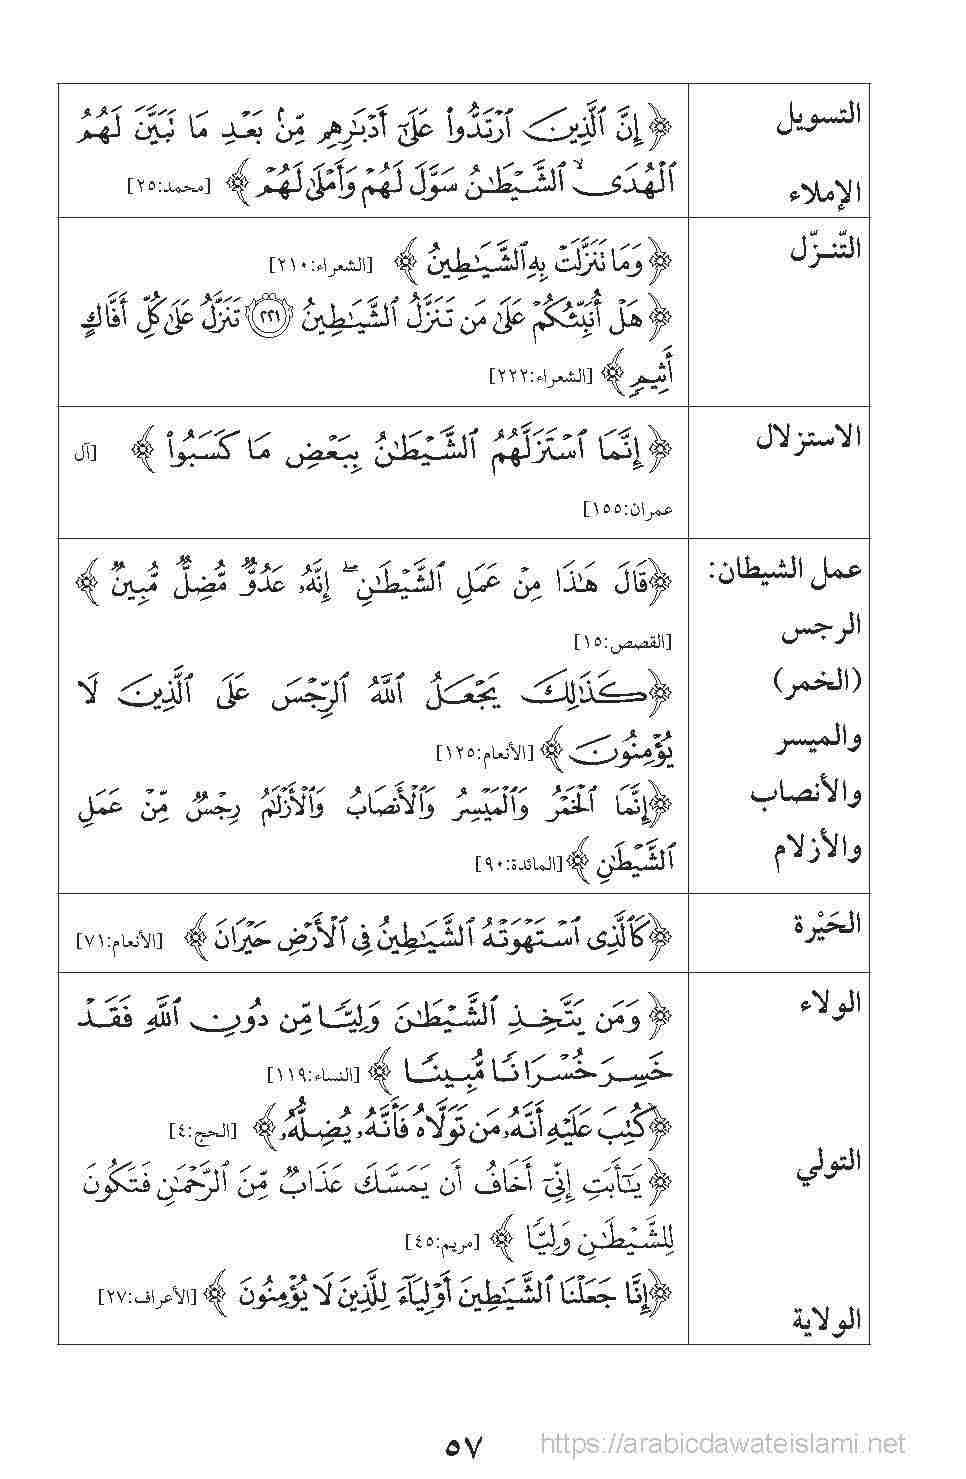 التسويل
﴿ إِنَّ ٱلَّذِينَ ٱرْتَدُّوا۟ عَلَىٰٓ أَدْبَـٰرِهِم مِّنۢ بَعْدِ مَا تَبَيَّنَ لَهُمُ
الإملاء
ٱلْهُدَى ۙ ٱلشَّيْطَـٰنُ سَوَّلَ لَهُمْ وَأَمْلَىٰ لَهُمْ ﴾ [محمد:٢٥]
التّنـزّل
﴿ وَمَا تَنَزَّلَتْ بِهِ ٱلشَّيَـٰطِينُ ﴾ [الشعراء:٢١٠]
﴿ هَلْ أُنَبِّئُكُمْ عَلَىٰ مَن تَنَزَّلُ ٱلشَّيَـٰطِينُ ٢٢١ تَنَزَّلُ عَلَىٰ كُلِّ أَفَّاكٍ
أَثِيمٍ ﴾ [الشعراء:٢٢٢]
الاستزلال
﴿ إِنَّمَا ٱسْتَزَلَّهُمُ ٱلشَّيْطَـٰنُ بِبَعْضِ مَا كَسَبُوا۟ ﴾ [آل
عمران:١٥٥]
عمل الشيطان:
﴿قَالَ هَـٰذَا مِنْ عَمَلِ ٱلشَّيْطَـٰنِ ۖ إِنَّهُۥ عَدُوٌّ مُّضِلٌّ مُّبِينٌ ﴾
الرجس
[القصص:١٥]
(الخمر)
﴿كَذَٰلِكَ يَجْعَلُ ٱللَّهُ ٱلرِّجْسَ عَلَى ٱلَّذِينَ لَا
والميسر
يُؤْمِنُونَ ﴾ [الأنعام:١٢٥]
والأنصاب
﴿إِنَّمَا ٱلْخَمْرُ وَٱلْمَيْسِرُ وَٱلْأَنصَابُ وَٱلْأَزْلَـٰمُ رِجْسٌ مِّنْ عَمَلِ
والأزلام
ٱلشَّيْطَـٰنِ ﴾ [المائدة:٩٠]
الحَيْرة
﴿كَٱلَّذِى ٱسْتَهْوَتْهُ ٱلشَّيَـٰطِينُ فِى ٱلْأَرْضِ حَيْرَانَ ﴾ [الأنعام:٧١]
الولاء
﴿ وَمَن يَتَّخِذِ ٱلشَّيْطَـٰنَ وَلِيًّا مِّن دُونِ ٱللَّهِ فَقَدْ
خَسِرَ خُسْرَانًا مُّبِينًا ﴾ [النساء:١١٩]
﴿كُتِبَ عَلَيْهِ أَنَّهُۥ مَن تَوَلَّاهُ فَأَنَّهُۥ يُضِلُّهُۥ ﴾ [الحج:٤]
التولي
﴿ يَـٰٓأَبَتِ إِنِّىٓ أَخَافُ أَن يَمَسَّكَ عَذَابٌ مِّنَ ٱلرَّحْمَـٰنِ فَتَكُونَ
لِلشَّيْطَـٰنِ وَلِيًّا ﴾ [مريم:٤٥]
﴿إِنَّا جَعَلْنَا ٱلشَّيَـٰطِينَ أَوْلِيَآءَ لِلَّذِينَ لَا يُؤْمِنُونَ ﴾ [الأعراف:٢٧]
الولاية
٥٧
https://arabicdawateislami.net